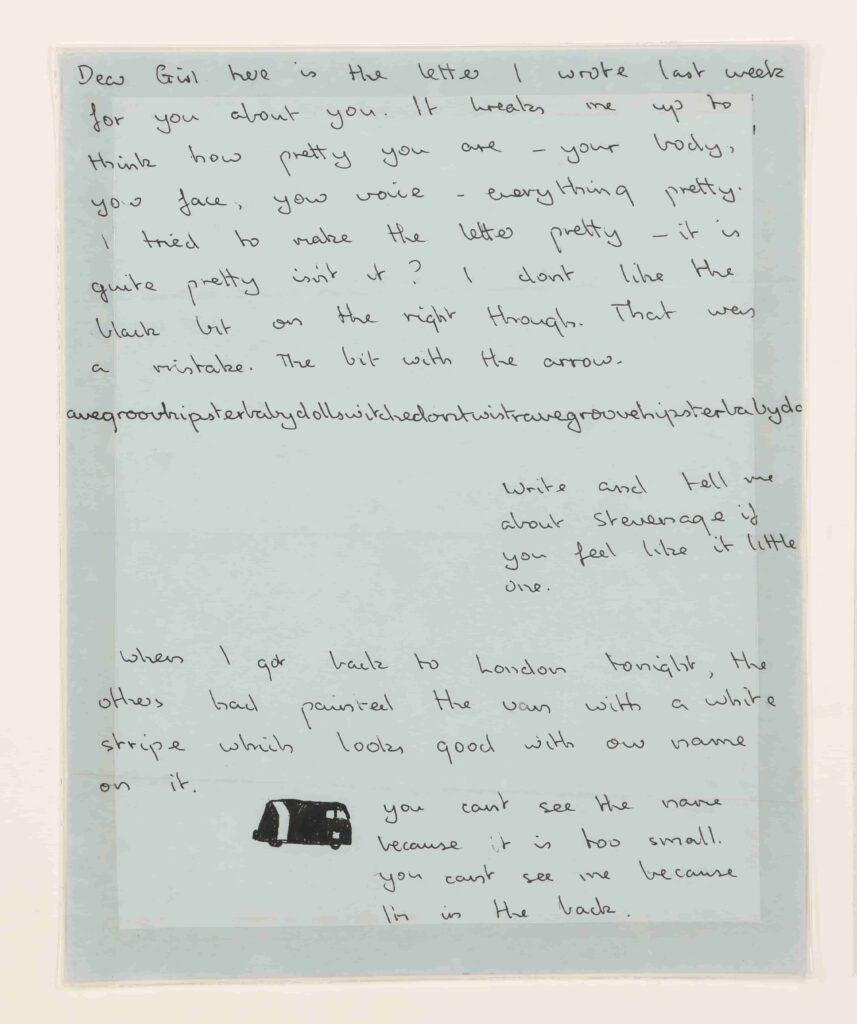 Dear Girl here is the letter I wrote last week
for you about you. It breaks me up to
think how pretty you are – your body,
your face, your voice – everything pretty.
I tried to make the letter pretty – it is
quite pretty isn't it? I dont like the
black bit on the right through. That was
a mistake. The bit with the arrow.
avegroovhipsterbabydollswitchedontwistravegroovehipsterbabydo
Write and tell me
about Stevenage if
you feel like it little
one.
When I got back to London tonight, the
others had painted the van with a white
stripe which looks good with our name
on it.
you cant see the name
because it is too small.
you cant see me because
I'm in the back.